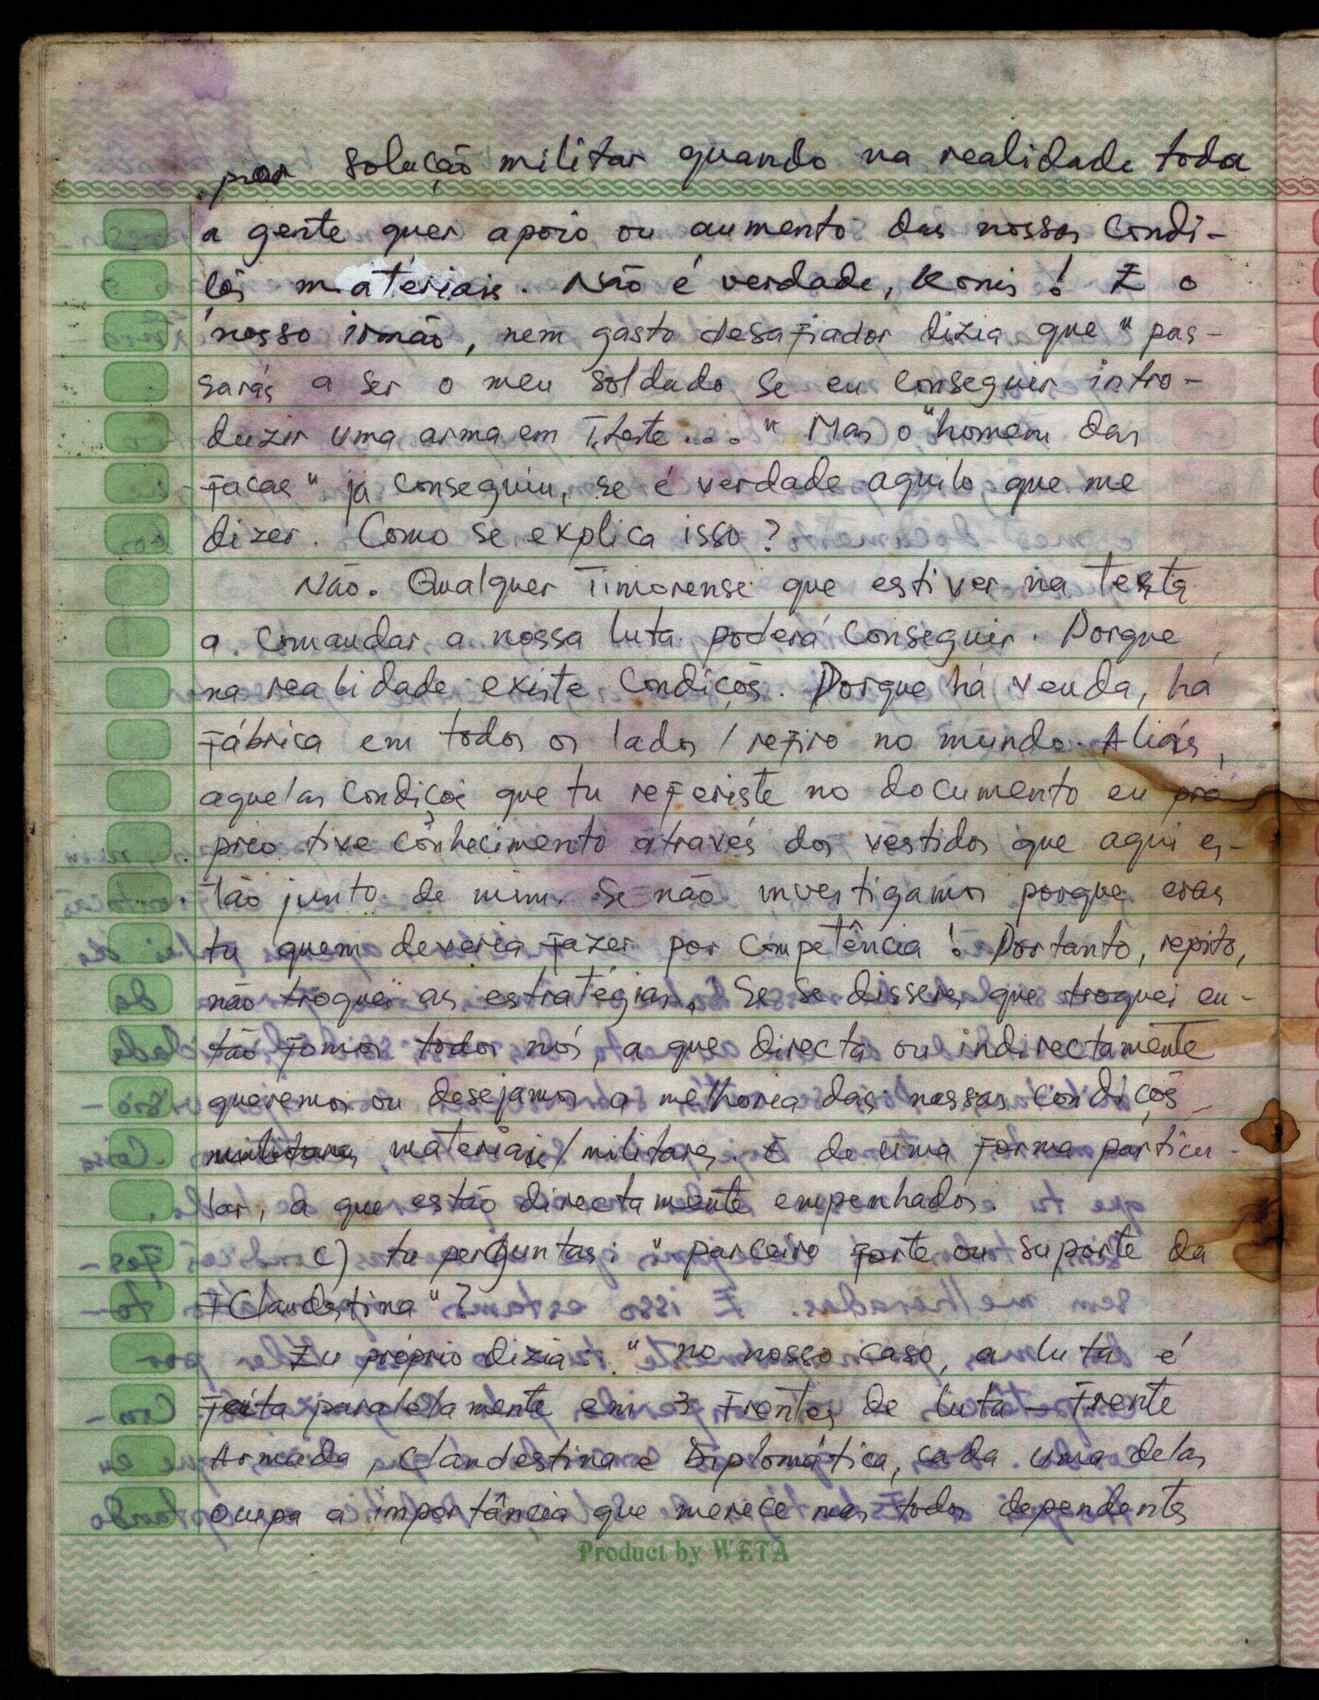 por solução militar quando na realidade toda
a gente quer apoio ou aumento das nossas condi-
çõs matériais. Não é verdade, Konis! E o
nosso irmão, nem gasto desafiador dizia que "pas-
sarás a ser o meu soldado se eu conseguir intro-
duzir uma arma em T. Leste..." Mas o "homem das
facas" já conseguiu, se é verdade aquilo que me
dizer. Como se explica isso?
Não. Qualquer Timorense que estiver na testa
a comandar a nossa luta poderá conseguir. Porque
na realidade existe condiçõs. Porque há venda, há
fábrica em todos os lados / refiro no mundo. Aliás,
aquelas condiçõs que tu referiste no documento eu pró
prio tive conhecimento através dos vestidos que aqui es-
tão junto de mim. Se não investigamos porque eras
tu quem deveria fazer por competência! Portanto, repito,
não troquei as estratégias. Se se disseres que troquei en-
tão fomos todos nós, a que directa ou indirectamente
queremos ou desejamos a melhoria das nossas condiçõs
militares materiais/militares. E de uma forma particu-
lar, a que estão directamente empenhados.
c) tu perguntas: "parceiro forte ou suporte da
F Clandestina"?
Eu próprio dizia: "no nosso caso, a luta é
feita paralelamente em 3 frentes de luta - Frente
Armada, Clandestina e Diplomática, cada uma delas
ocupa a importância que merece mas todos dependentes
Product by WETA